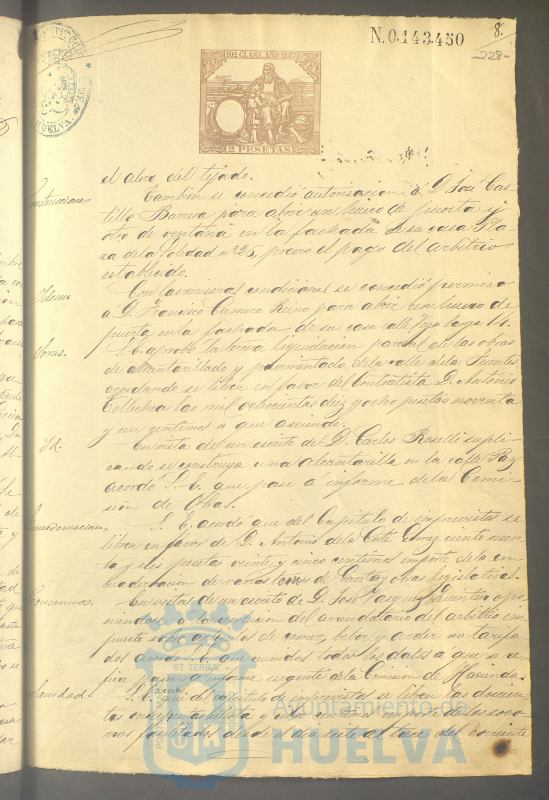 N.0.143.450
8.
228-
10ª CLASE. AÑO 1887
2 PESETAS
HUELVA
el alero del tejado.
Construcciones
Tambien se concedió autorizacion á D. José Cas-
tillo para abrir un hueco de puerta y
otro de ventana en la fachada de su casa Pla-
za de la Soledad nº 26, previo el pago del arbitrio
establecido.
Idem
Con las mismas condiciones se concedió permiso
a D. Francisco Romero para abrir un hueco de
puerta en la fachada de su casa calle Vega larga 14.
Obras.
S. E. aprobó la tercera liquidacion parcial de las obras
de alcantarillado y pavimentado de la calle de la Fuente
acordando se libren en favor del Contratista D. Antonio
las mil ochocientas diez y ocho pesetas noventa
y un centimos a que asciende.
Id.
En vista de un escrito de D. Carlos supli-
cando se construya una alcantarilla en la calle Paz
acordó S. E. que pase á informe de la Comi-
sion de Obras.
Encuadernacion
S. E. acordó que del Capitulo de imprevistos se
libren en favor de D. Antonio de la Corte ciento
y tres pesetas veinte y cinco centimos importe de la en-
cuadernacion de varios tomos de Gaceta y obras legislativas.
Consumos.
En vista de un escrito de D. José Vazquez opo-
niendose a la del arrendatario del arbitrio im-
puesto sobre articulos de comer, beber y arder no tarifa-
dos acordó S. E. que unidos todos los datos a que se re-
fiere pase a informe urgente de la Comision de Hacienda.
Sanidad
S. E. acordó que del capitulo de imprevistos se libren las doscien-
tas cincuenta y centimos importe de los soco-
rros facilitados desde el dia siete al trece del corriente
Ayuntamiento de
HUELVA